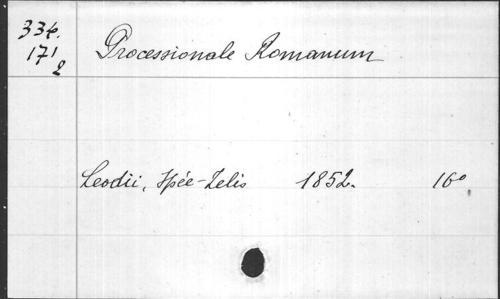 334.
171
2
Processionale Romanum
Leodii, Spée-Zelis 1852. 16°